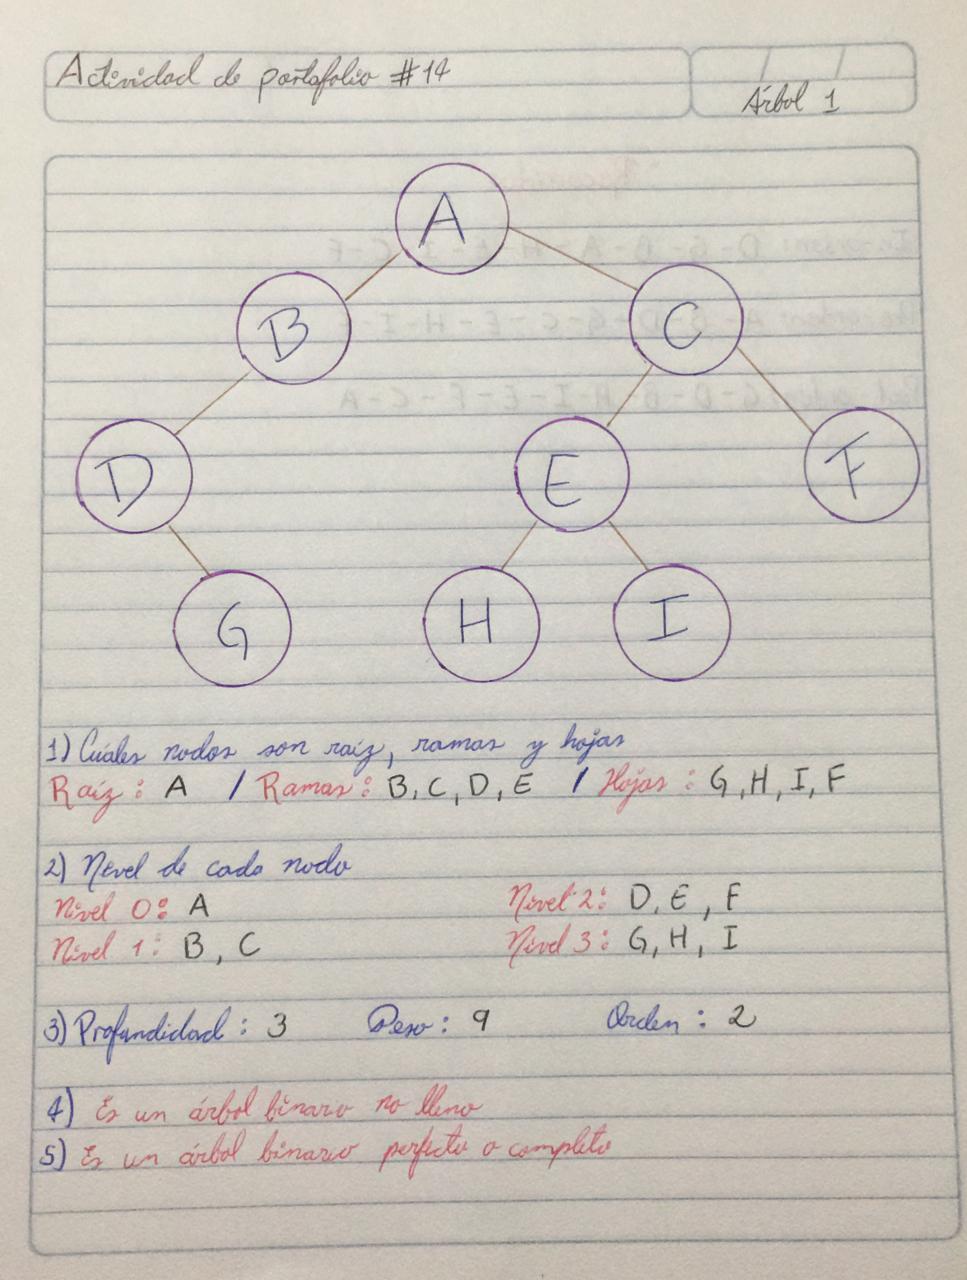 Actividad de portafolio #14
Árbol 1
A
B
C
D
E
F
G
H
I
1) Cuáles nodos son raíz, ramas y hojas
Raíz: A / Ramas: B, C, D, E / Hojas: G, H, I, F
2) Nivel de cada nodo
Nivel 0: A
Nivel 2: D, E, F
Nivel 1: B, C
Nivel 3: G, H, I
3) Profundidad: 3 Peso: 9 Orden: 2
4) Es un árbol binario no lleno
5) Es un árbol binario perfecto o completo